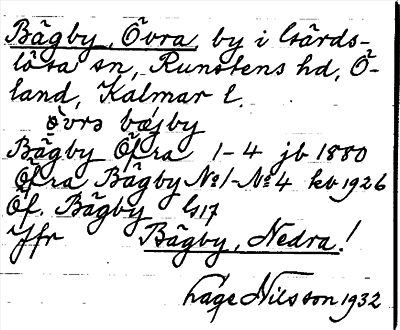 Bägby, Övra by i Gärds-
lösa sn, Runstens hd, Ö-
land, Kalmar l.
övrɘ bæjby
Bägby Öfra 1-4 jb 1880
Öfra Bägby No1-No4 kb 1926
Öf. Bägby GS17
Jfr Bägby, Nedra!
Lage Nilsson 1932